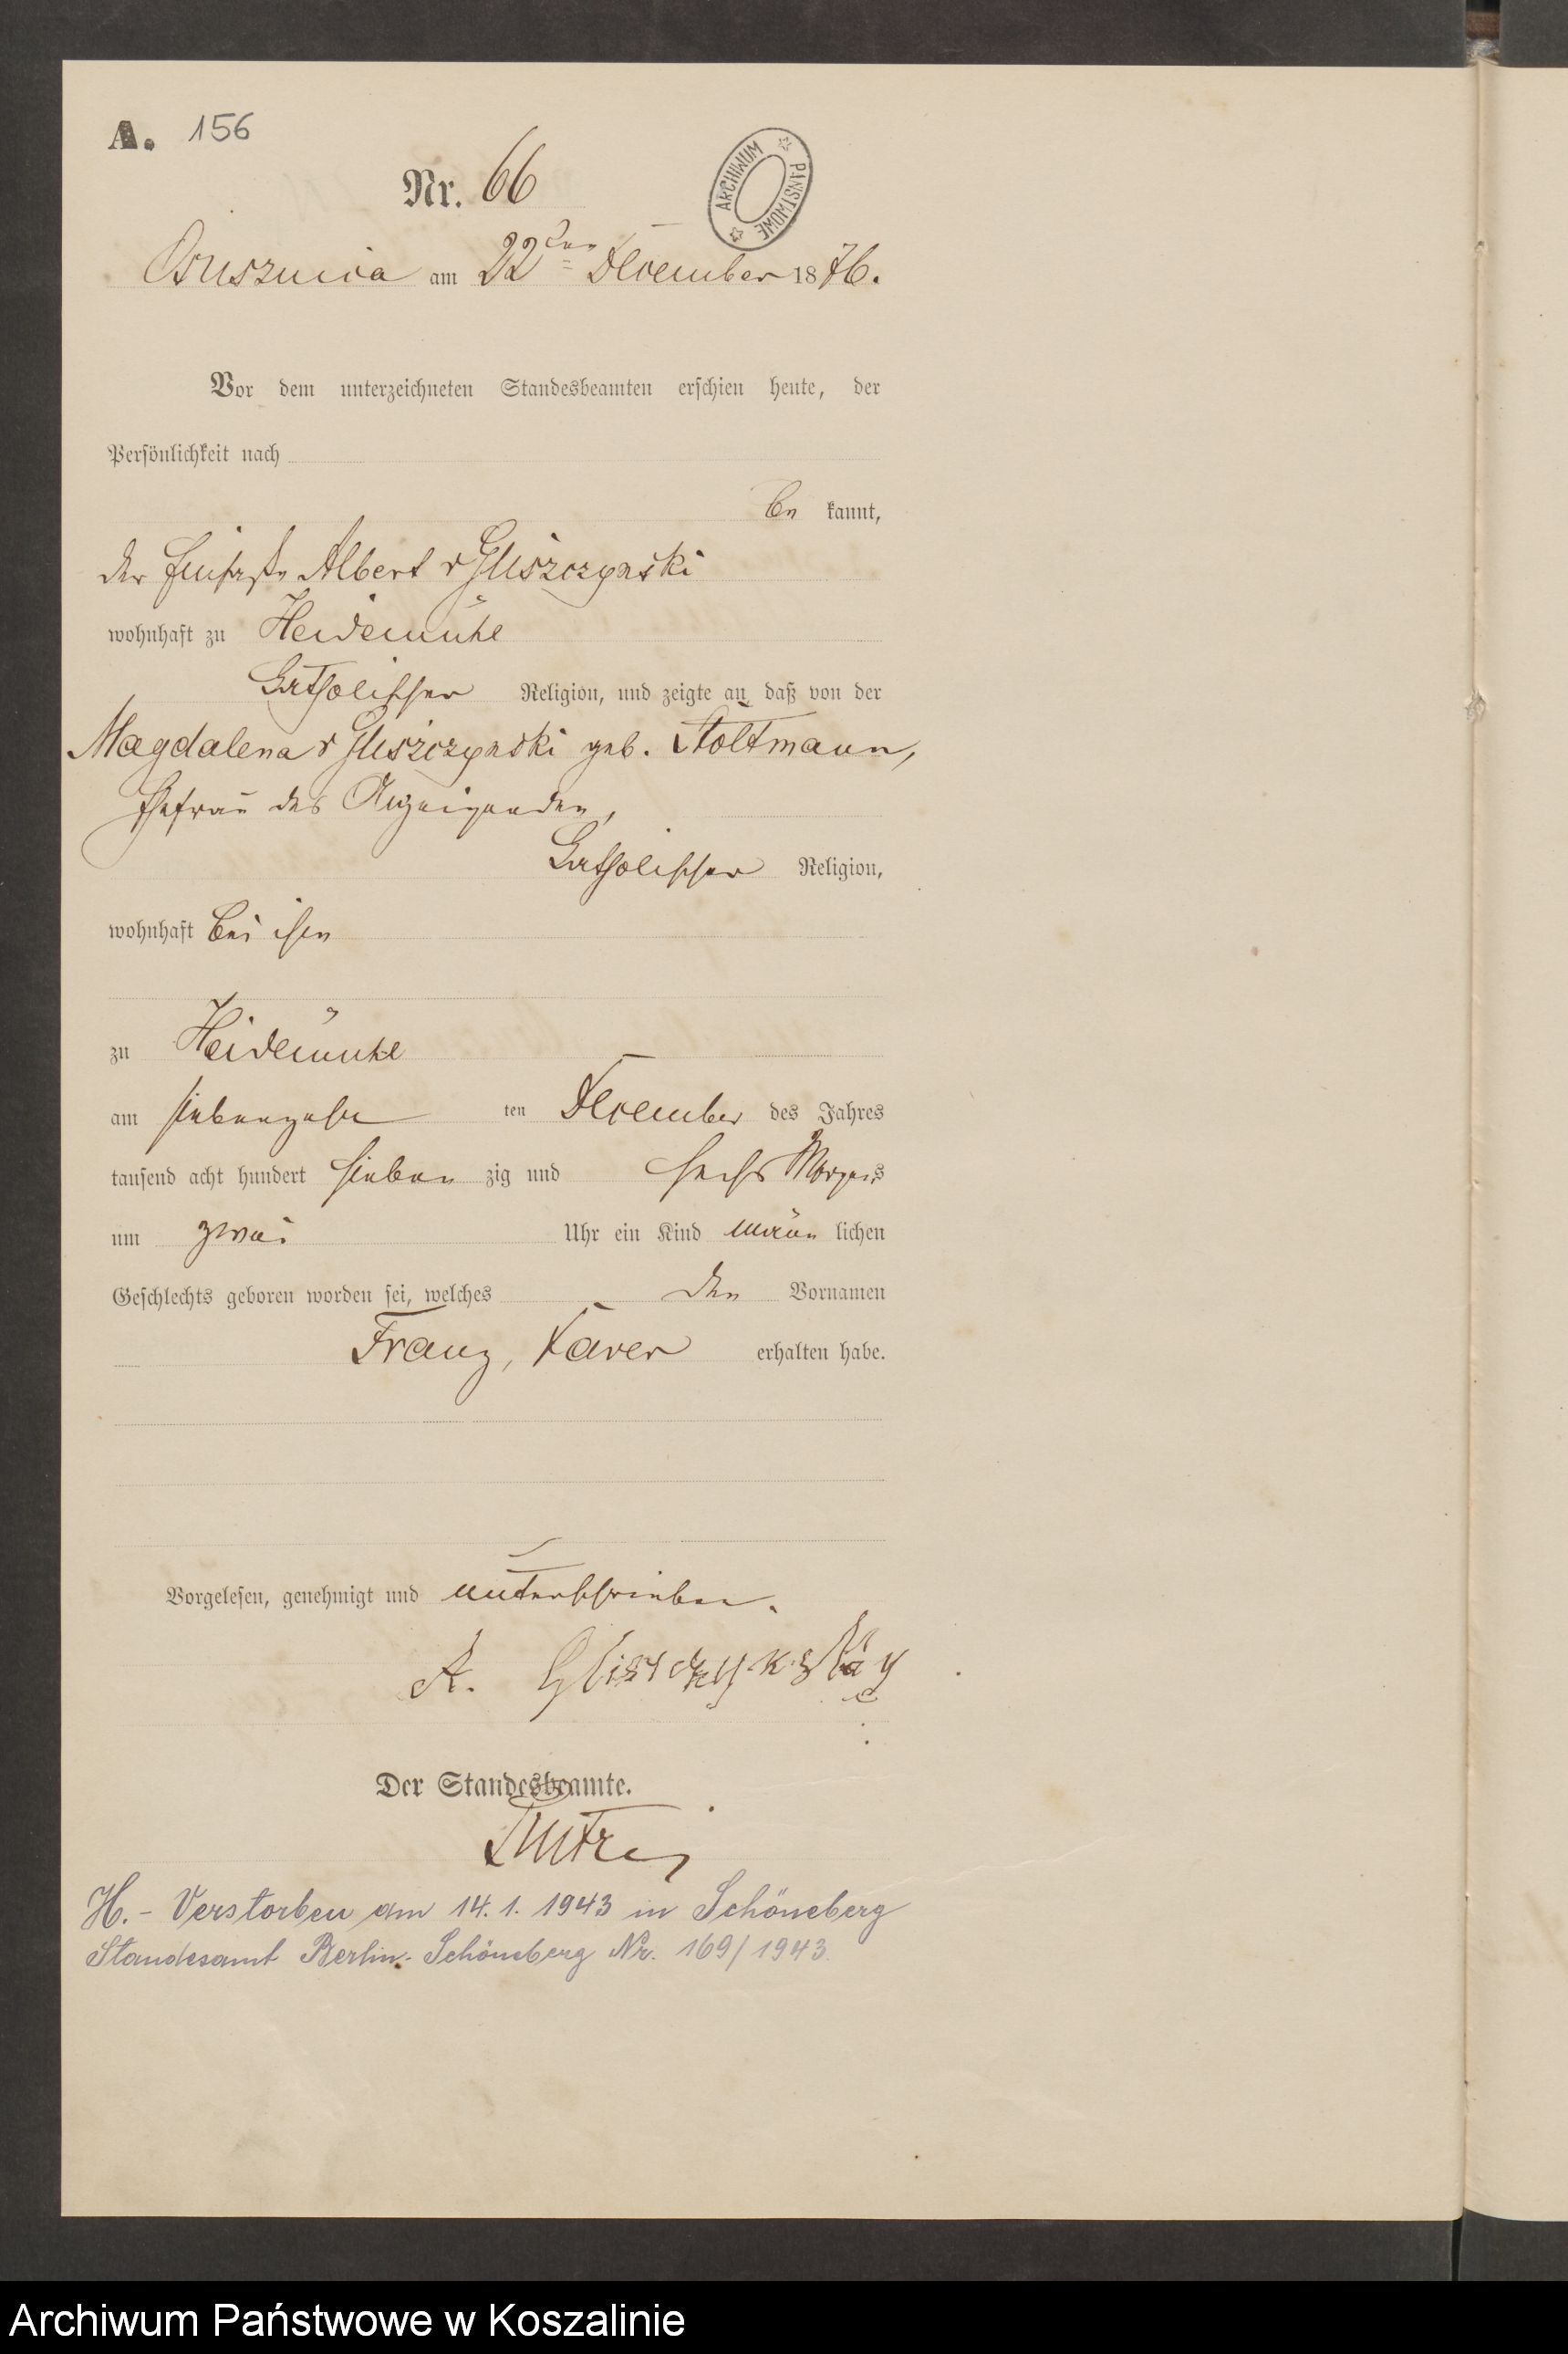 A. 156
Nr. 66
ARCHIWUM PAŃSTWOWE
Ossusznica am 22ten December 1876.
Vor dem unterzeichneten Standesbeamten erschien heute, der
Persönlichkeit nach
be kannt,
der Albert v Gliszczynski
wohnhaft zu Heidemühl
Katholischer Religion, und zeigte an, daß von der
Magdalena v Gliszczynski geb. Stoltmann,
Ehefrau des Anzeigenden,
Katholischer Religion,
wohnhaft bei ihm
zu Heidemühl
am siebenzehn ten December des Jahres
tausend acht hundert sieben zig und sechs Morgens
um zwei Uhr ein Kind männ lichen
Geschlechts geboren worden sei, welches den Vornamen
Franz, Xaver erhalten habe.
Vorgelesen, genehmigt und unterschrieben.
A.
Der Standesbeamte.
H. - Verstorben am 14. 1. 1943 in Schöneberg
Standesamt Berlin-Schöneberg Nr. 169/1943.
Archiwum Państwowe w Koszalinie